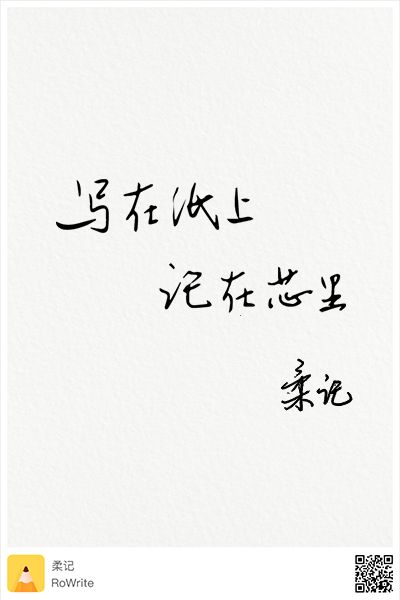 写在纸上
记在芯里
柔记
柔记
RoWrite